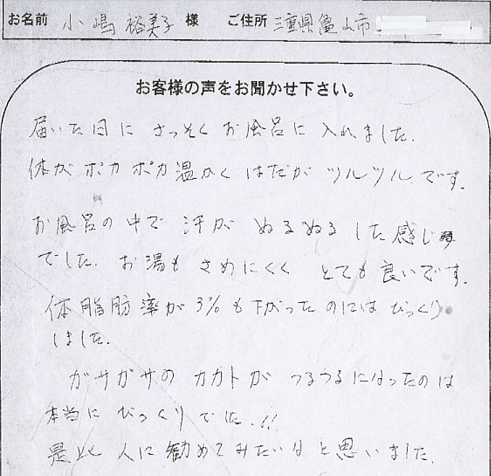 お名前 小嶋 裕美子 様 ご住所 三重県亀山市
お客様の声をお聞かせ下さい。
届いた日に さっそく お風呂に 入れました.
体が ポカポカ 温かく はだが ツルツル です.
お風呂の中で 汗が ぬるぬる した 感じ
でした. お湯も さめにくく とても 良いです.
体脂肪率が 3%も 下がったのには びっくり
しました.
ガサガサの カカトが つるつるに なったのは
本当に びっくり でした.!!
是非 人に 勧めて みたいなと 思いました.